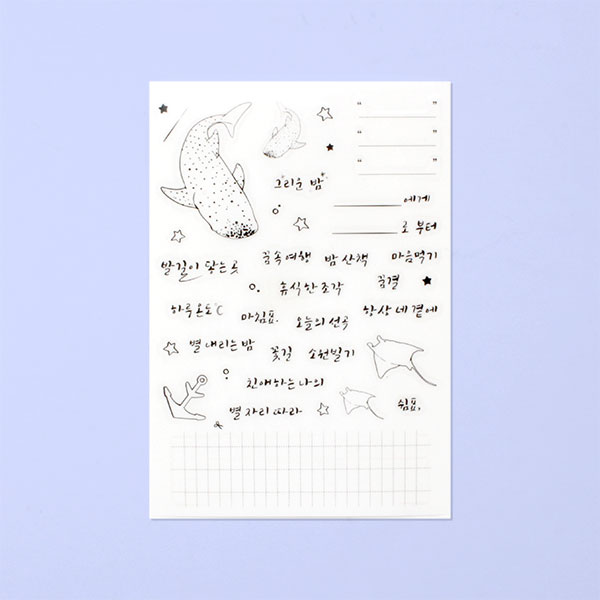 “ ”
“ ”
“ ”
그리운 밤
에게
로 부터
발길이 닿는 곳
꿈속여행
밤 산책
마음먹기
휴식한조각
꿈결
하루온도℃
마침표.
오늘의 선곡
항상 네 곁에
별 내리는 밤
꽃길
소원빌기
친애하는 나의
별 자리 따라
쉼표,